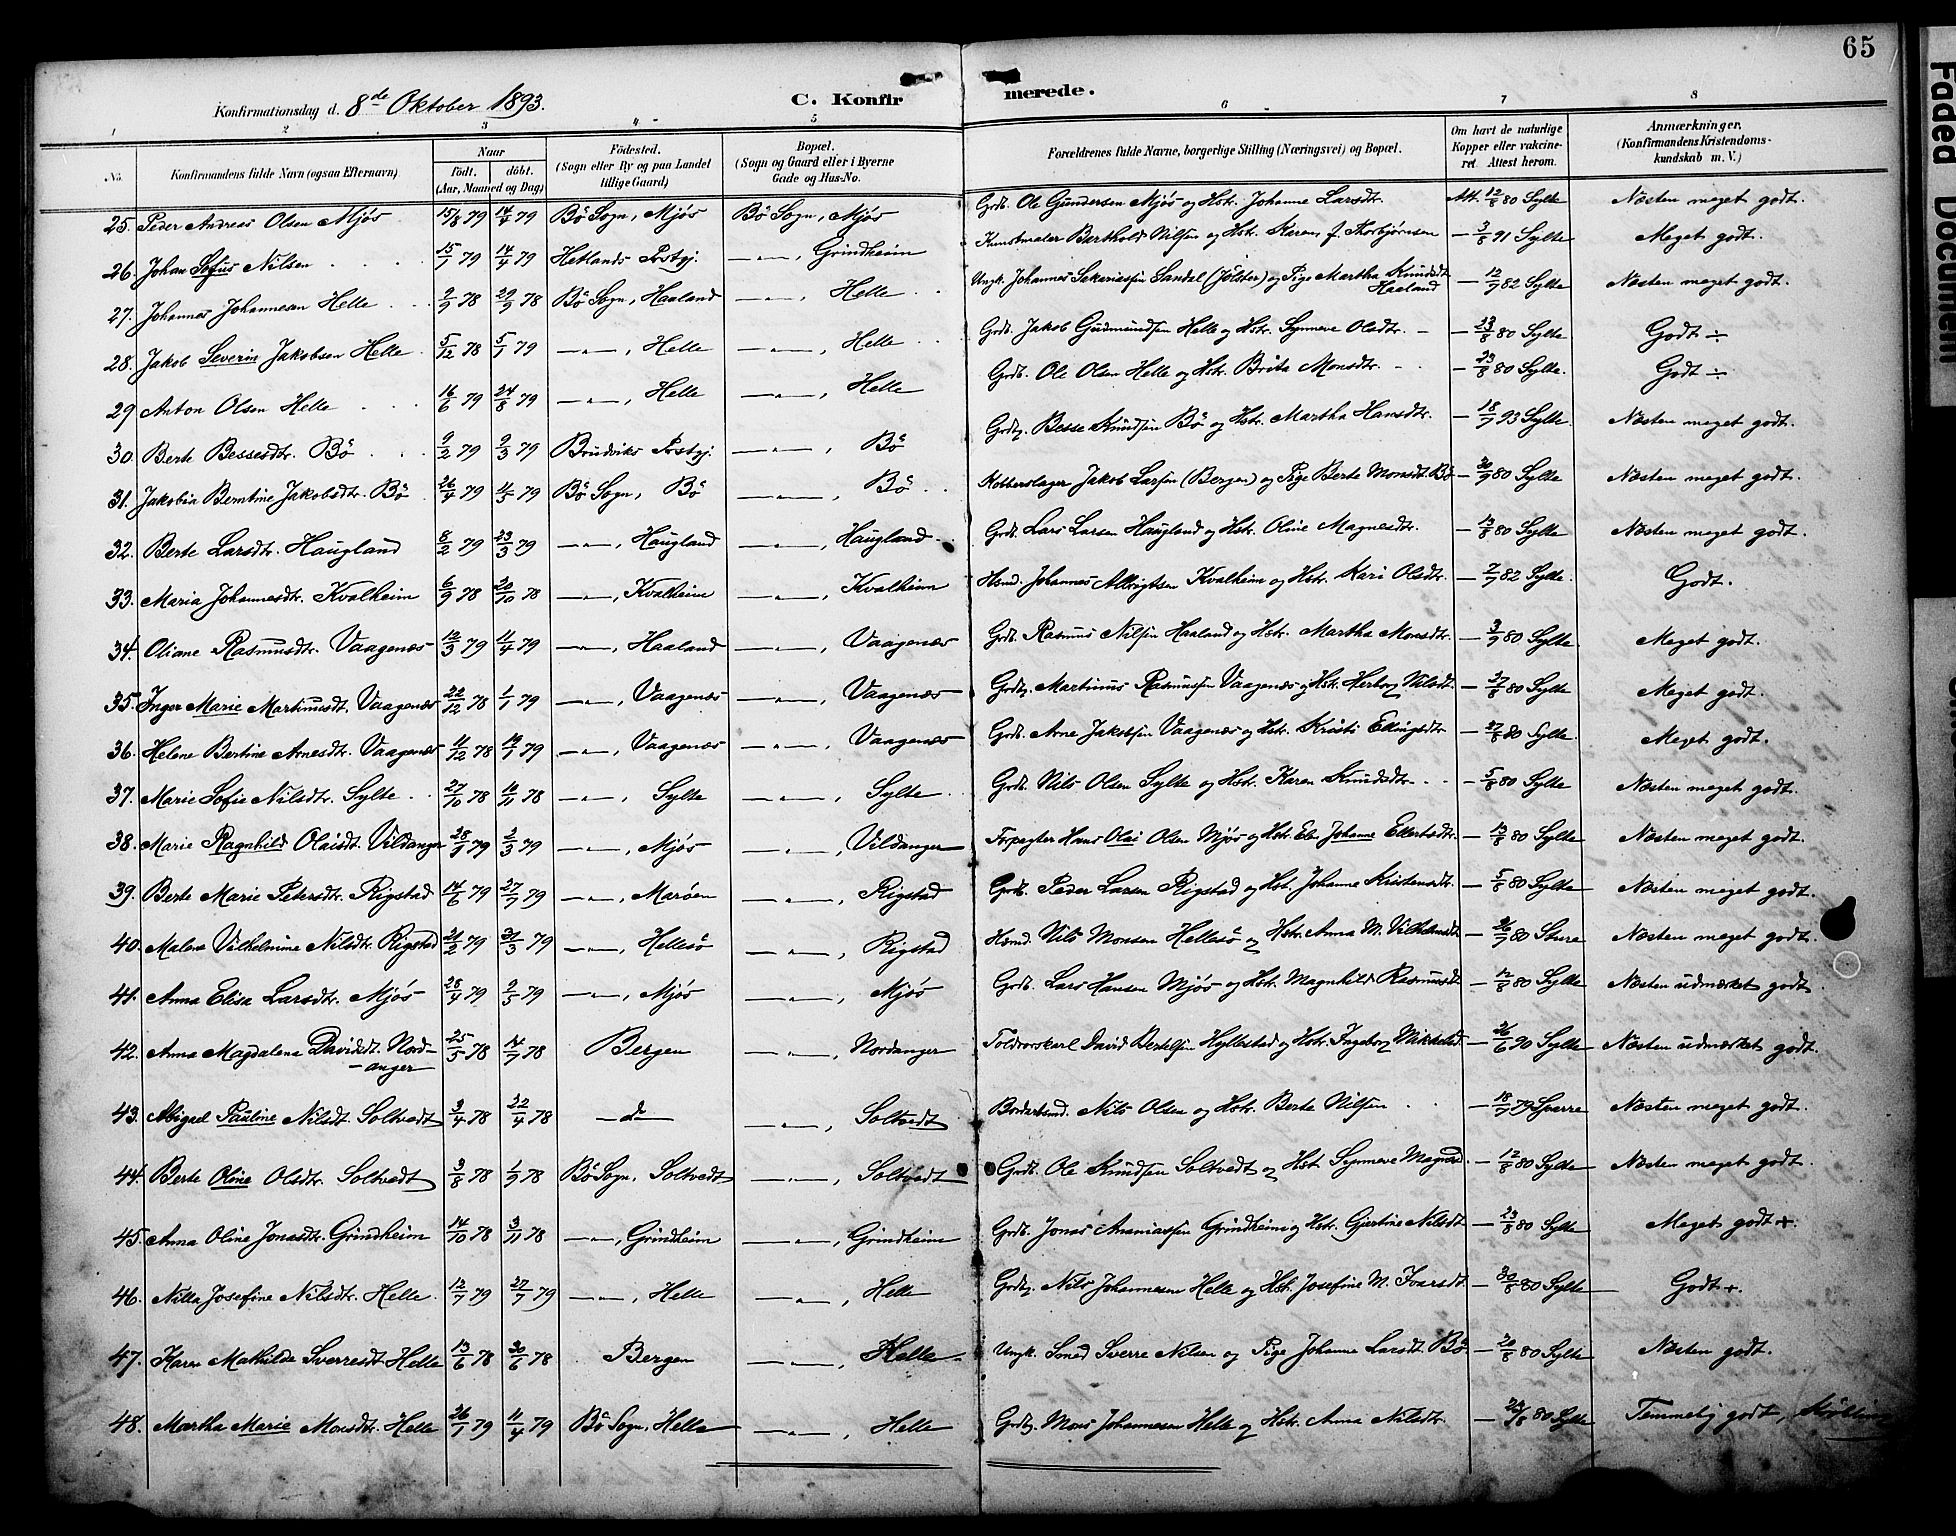 65
Konfirmationsdag d. 8de Oktober 1893.
C. Konfirmerede.
1 2 3 4 5 6 7 8
No. Konfirmandens fulde Navn (ogsaa Efternavn). Naar Født. døbt. (Aar, Maaned og Dag) Fødested. (Sogn eller By og paa Landet tillige Gaard) Bopæl. (Sogn og Gaard eller i Byerne Gade og Hus-No. Forældrenes fulde Navne, borgerlige Stilling (Næringsvei) og Bopæl. Om havt de naturlige Kopper eller vakcineret. Attest herom. Anmærkninger. (Konfirmandens Kristendomskundskab m. V.)
25. Peder Andreas Olsen Mjøs 79 14/4 79 Bø Sogn, Mjøs Bø Sogn, Mjøs Grdb. Ole Gundersen Mjøs og Hstr. Johanne Larsdtr. Att. 12/8 80 Sylte Næsten meget godt.
26. Johan Sofus Nilsen 15/1 79 14/4 79 Hetlands Prstgj. —"—, Grindheim Kunstmaler Berthold Nilsen og Hstr. Karen f. Thorbjørnsen — 3/8 91 Sylte Meget godt.
27. Johannes Johannesen Helle 9/9 78 29/9 78 Bø Sogn, Haaland —"—, Helle Ungk. Johannes Sakariassen Sandal (Jølster) og Pige Martha Knudsdt. Haaland — 12/9 82 Sylte Næsten meget godt.
28. Jakob Severin Jakobsen Helle 5/12 78 5/1 79 —"—, Helle —"—, Helle Grdb. Jakob Gudmundsen Helle og Hstr. Synneve Olsdtr. — 23/8 80 Sylte Godt ÷
29 Anton Olsen Helle 16/6 79 24/8 79 —"—, Helle —"—, Helle Grdb. Ole Olsen Helle og Hstr. Brita Monsdtr. — 23/8 80 Sylte. Godt ÷
30 Berte Bessesdtr. Bø 9/2 79 9/3 79 Bruviks Prstgj. —"—, Bø Grdbr. Besse Knudsen Bø og Hstr. Martha Hansdtr. — 18/7 93 Sylte. Næsten meget godt.
31. Jakobia Berntine Jakobsdtr. Bø 26/4 79 11/5 79 Bø Sogn, Bø —"—, Bø Kobberslager Jakob Larsen (Bergen) og Pige Berte Monsdt. Bø — 30/9 80 Sylte Næsten meget godt.
32. Berte Larsdtr. Haugland 8/2 79 23/3 79 —"—, Haugland —"—, Haugland Grdb. Lars Larsen Haugland og Hstr. Oline Magnesdtr. — 13/8 80 Sylte Næsten meget godt.
33. Maria Johannesdtr. Kvalheim 6/9 78 20/10 78 —"—, Kvalheim —"—, Kvalheim Hsmd. Johannes Albrigtsen Kvalheim og Hstr. Kari Olsdtr. — 7/9 82 Sylte. Godt.
34. Oliane Rasmusdtr. Vaagenæs 12/3 79 11/4 79 —"—, Haaland —"—, Vaagenæs Grdb. Rasmus Nilsen Haaland og Hstr. Martha Monsdtr. — 3/9 80 Sylte Meget godt.
35. Inger Marie Martinusdt. Vaagenæs 22/12 78 1/1 79 —"—, Vaagenæs —"—, Vaagenæs Grdbr. Martinus Rasmussen Vaagenæs og Hstr. Herborg Nilsdt. — 27/8 80 Sylte Meget godt.
36. Helene Bertine Arnesdtr. Vaagenæs 11/12 78 19/1 79 —"—, Vaagenæs —"—, Vaagenæs Grdb. Arne Jakobsen Vaagenæs og Hstr. Kristi Ellingsdtr — 27/8 80 Sylte. Meget godt.
37. Marie Sofie Nilsdtr. Sylte 27/10 78 10/11 78 —"—, Sylte —"—, Sylte Grdb. Nils Olsen Sylte og Hstr. Karen Knudsdtr. — 5/8 80 Sylte Næsten meget godt.
38. Marie Ragnhild Olaisdt. Vildanger 28/1 79 2/3 79 —"—, Mjøs —"—, Vildanger Forpagter Hans Olai Olsen Mjøs og Hstr. Johanne Ellertsdtr. — 13/8 80 Sylte Næsten meget godt.
39. Berte Marie Petersdtr. Rigstad 14/6 79 27/7 79 —"—, Marøen —"—, Rigstad Grdb. Peder Larsen Rigstad og Hst. Johanne Kristensdtr. — 5/8 80 Sylte Næsten meget godt.
40. Malena Vilhelmine Nilsdtr. Rigstad 21/2 79 3/3 79 —"—, Hellesø —"—, Rigstad Hsmd. Nils Monsen Hellesø og Hstr. Anna M. Vilhelmsdt. — 26/7 80 Sture Næsten meget godt.
41. Anna Elisa Larsdtr. Mjøs 28/4 79 2/5 79 —"—, Mjøs —"—, Mjøs Grdb. Lars Hansen Mjøs og Hstr Magnhild Rasmusdt — 12/8 80 Sylte Næsten udmærket godt.
42. Anna Magdalena Davidsdt. Nordanger 25/5 78 14/7 78 Bergen —"—, Nordanger Toldrorskarl David Bertelsen Hyllestad og Hstr. Ingeborg Mikkelsd. — 26/6 90 Sylte Næsten udmærket godt.
43. Abigael Pauline Nilsdt. Soltvedt 3/4 78 22/4 78 —do— —"—, Soltvedt Nils Olsen og Hstr. Berte Nilsen — 18/7 79 Sverre Næsten meget godt.
44. Berte Oline Olsdtr. Soltvedt 3/8 78 1/9 78 Bø Sogn, Soltvedt —"—, Soltvedt Grdb. Ole Knudsen Soltvedt og Hst. Synneve Magnsd. — 12/8 80 Sylte Næsten meget godt.
45. Anna Oline Jonasdtr. Grindheim 14/10 78 3/11 78 —"—, Grindheim —"—, Grindheim Grdb. Jonas Ananiassen Grindheim og Hstr. Gjertine Nilsdt. — 23/8 80 Sylte Meget godt +.
46. Nilla Josefine Nilsdtr. Helle. 12/7 79 27/7 79 —"—, Helle —"—, Helle Grdbr. Nils Johannesen Helle og Hst. Josefine M. Ivarsdt. — 30/8 80 Sylte Godt +.
47. Karen Mathilde Sverresdt Helle 13/6 78 30/6 78 Bergen —"—, Helle Ungk. Sverre Nilsen og Pige Johanne Larsdt. Bø. — 20/8 80 Sylte Næsten godt.
48. Martha Marie Monsdtr. Helle 26/1 79 11/4 79 Bø Sogn, Helle —"—, Helle Grdbr. Mons Johannesen Helle og Hstr. Anna Nilsdtr. — 80 Sylte Temmelig godt,
Faded Document